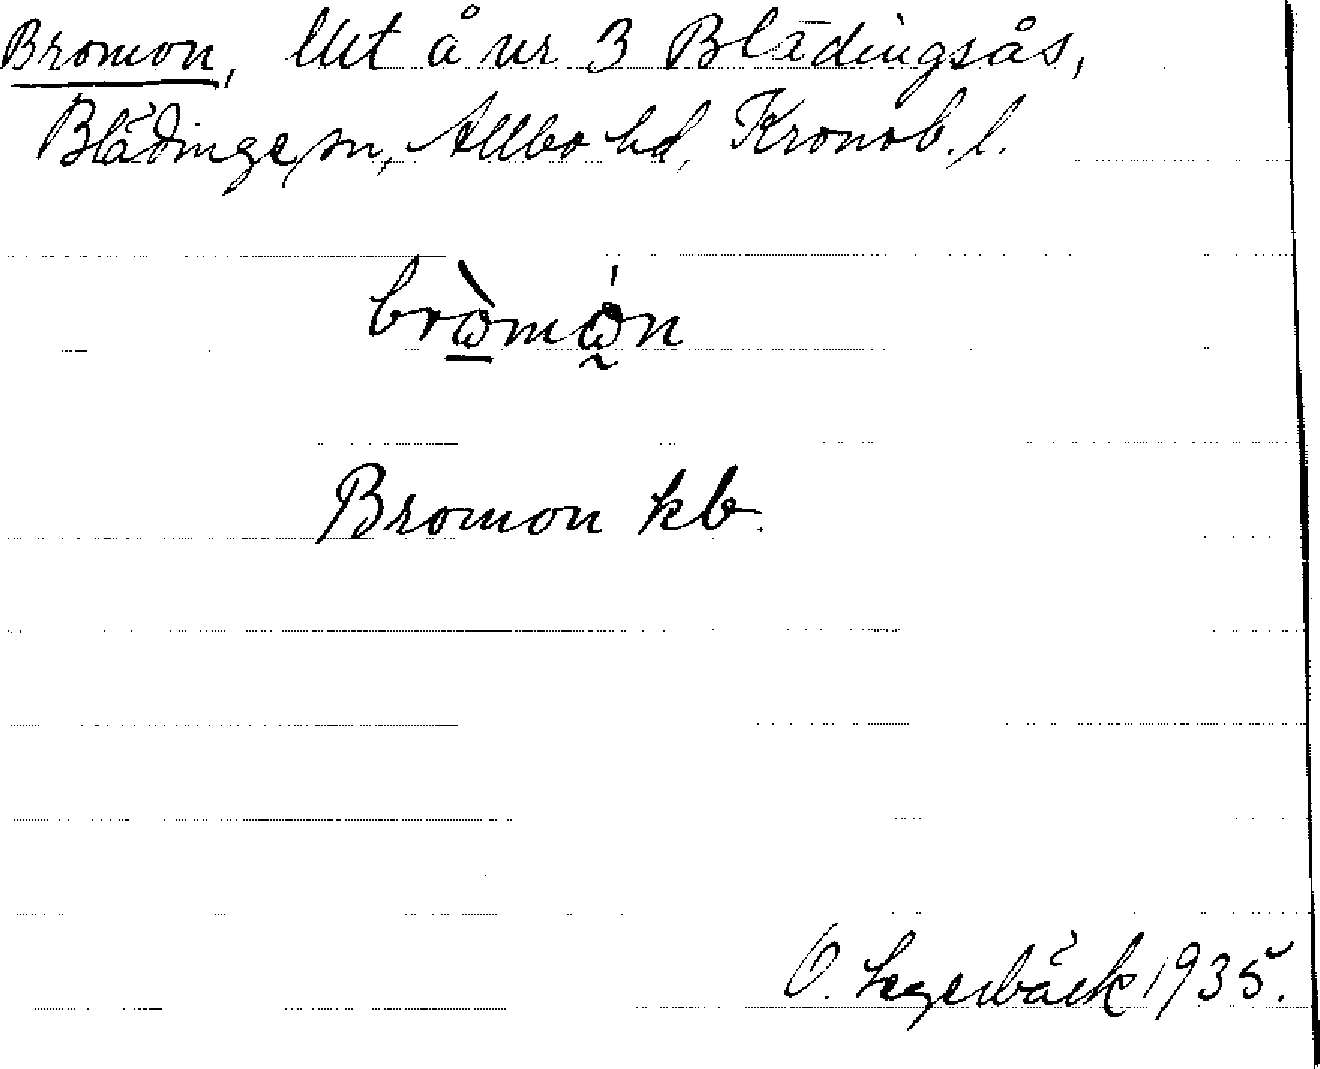 Bromon, Utt å nr 3 Blädingsås,
Blädinge sn, Allbo hd, Kronob. l.
bròmón
Bromon kb.
O. Legerbäck 1935.